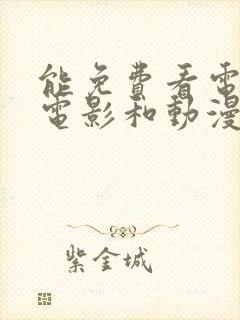 能免費看電
電影和動漫
紫金城